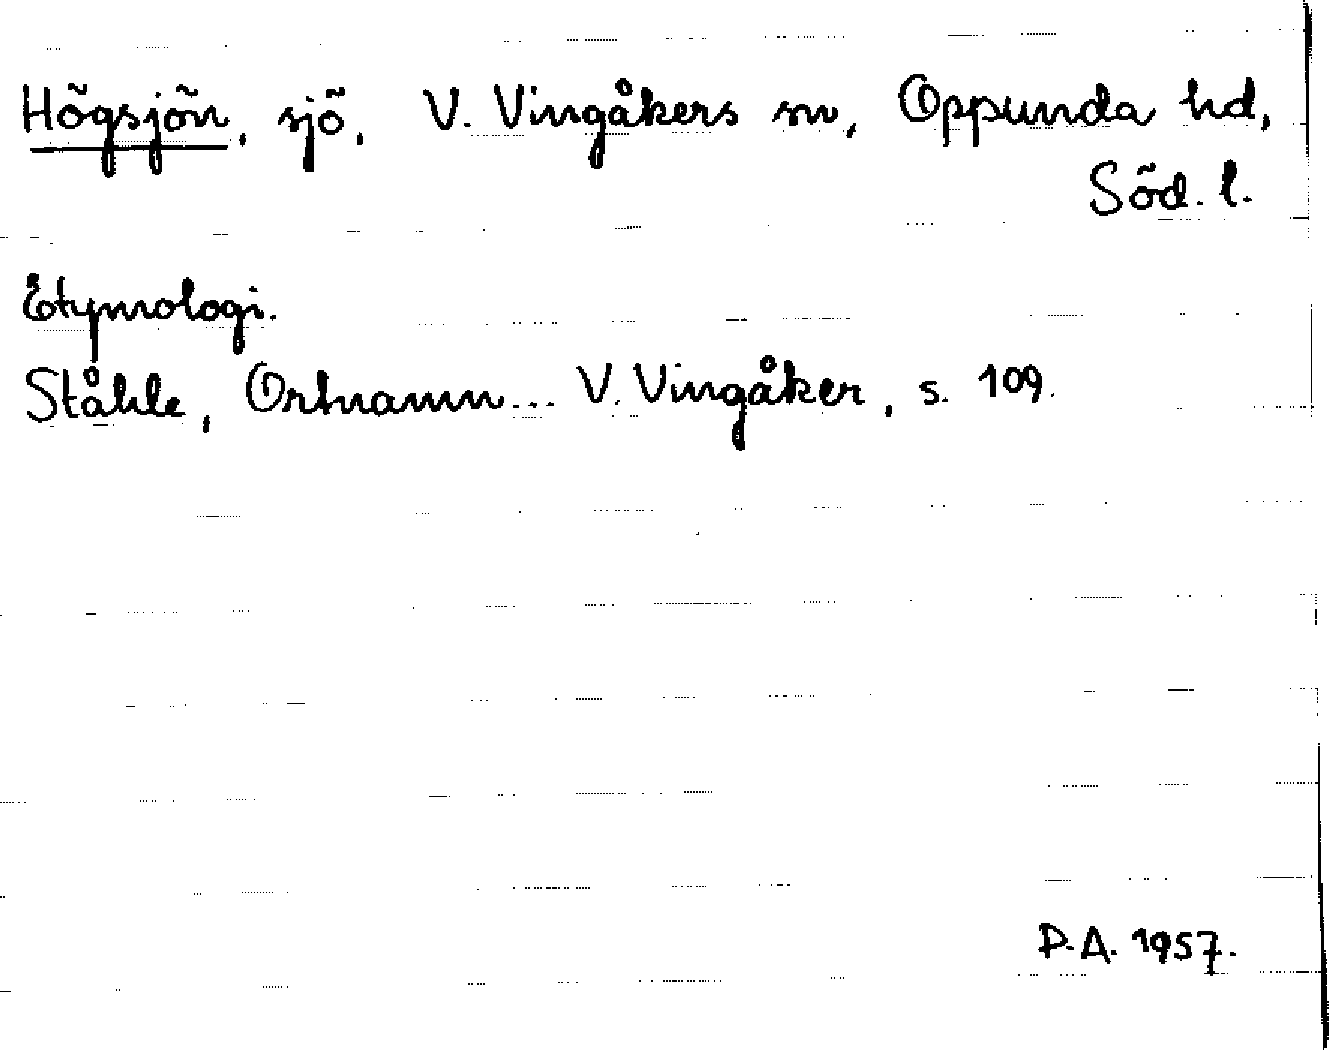 Högsjön, sjö, V. Vingåkers sn, Oppunda hd,
Söd. l.
Etymologi.
Ståhle, Ortnamn... V. Vingåker, s. 109.
P.A. 1957.